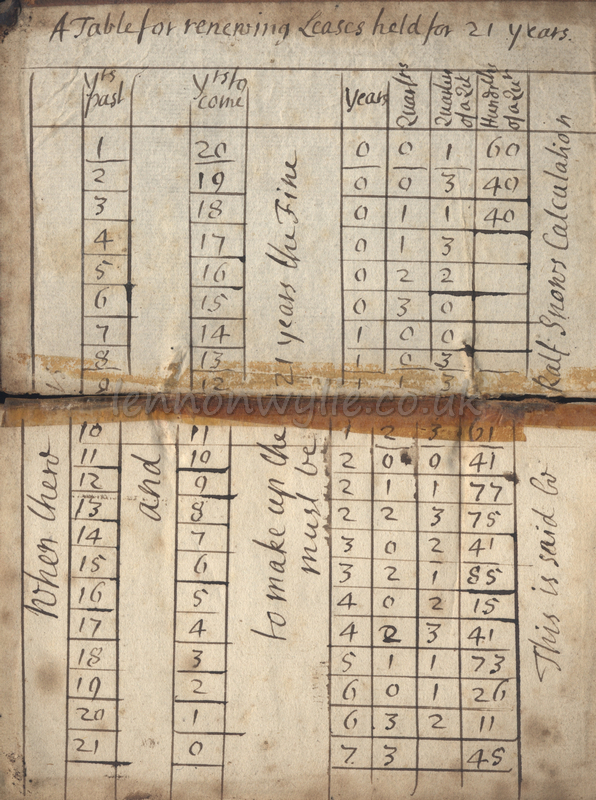 A Table for renewing Leases held for 21 years.
yrs past yrs to come Years Quarters Quarter of a Qr Hundriths of a Qr
When there
and
to make up the 21 years the Fine must be
This is said to Ralf Snows Calculation
1 20 0 0 1 60
2 19 0 0 3 40
3 18 0 1 1 40
4 17 0 1 3
5 16 0 2 2
6 15 0 3 0
7 14 1 0 0
8 13 1 0 3
9 12 1 1 3
lennonwylie.co.uk
10 11 1 2 3 61
11 10 2 0 0 41
12 9 2 1 1 77
13 8 2 2 3 75
14 7 3 0 2 41
15 6 3 2 1 85
16 5 4 0 2 15
17 4 4 2 3 41
18 3 5 1 1 73
19 2 6 0 1 26
20 1 6 3 2 11
21 0 7 3 45